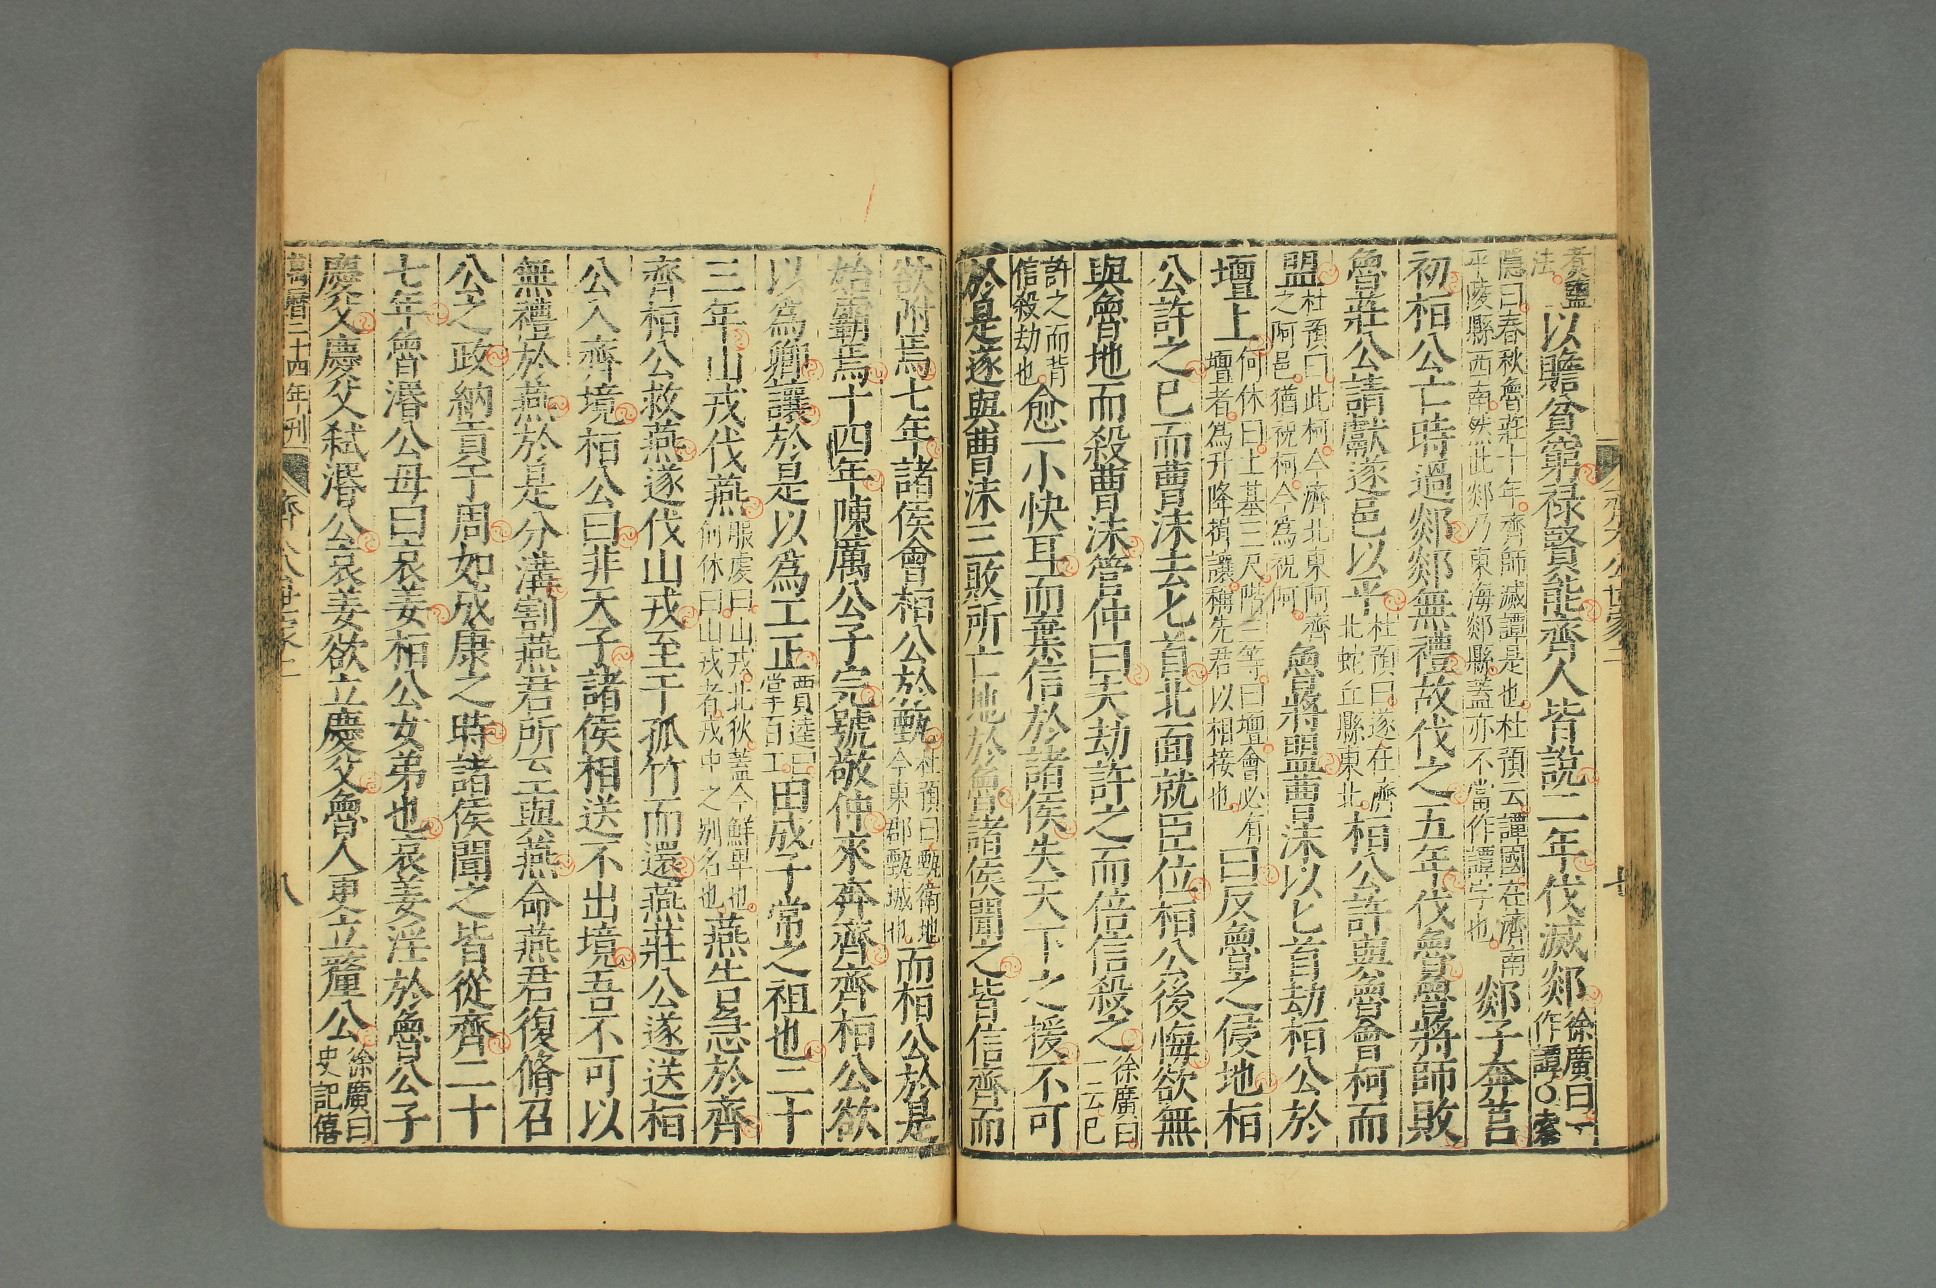 煑鹽
法。以贍貧窮禄賢能齊人皆說二年伐滅郯徐廣曰一作譚〇索
隱曰春秋魯莊十年齊師滅譚是也杜預云譚國在濟南平陵縣西南然此郯乃東海郯縣蓋亦不當作譚字也郯子奔莒
初桓公亡時過郯郯無禮故伐之五年伐魯魯將師敗
魯莊公請獻遂邑以平杜預曰遂在濟北蛇丘縣東北桓公許與魯會柯而
盟杜預曰此柯今濟北東阿齊之阿邑猶祝柯今為祝阿魯將盟曹沫以匕首劫桓公於
壇上何休曰土基三尺階三等曰壇會必有壇者為升降揖讓稱先君以相接也曰反魯之侵地桓
公許之已而曹沫去匕首北面就臣位桓公後悔欲無
與魯地而殺曹沫管仲曰夫劫許之而倍信殺之徐廣曰一云已
許之而背信殺劫也愈一小快耳而棄信於諸侯失天下之援不可
於是遂與曹沫三敗所亡地於魯諸侯聞之皆信齊而
欲附焉七年諸侯會桓公於甄杜預曰甄衛地今東郡甄城也而桓公於是
始霸焉十四年陳厲公子完號敬仲來奔齊齊桓公欲
以為卿讓於是以為工正賈逵曰掌百工田成子常之祖也二十
三年山戎伐燕服虔曰山戎北狄蓋今鮮卑也何休曰山戎者戎中之别名也燕告急於齊
齊桓公救燕遂伐山戎至于孤竹而還燕莊公遂送桓
公入齊境桓公曰非天子諸侯相送不出境吾不可以
無禮於燕於是分溝割燕君所至與燕命燕君復脩召
公之政納貢于周如成康之時諸侯聞之皆從齊二十
七年魯湣公母曰哀姜桓公女弟也哀姜淫於魯公子
慶父慶父弑湣公哀姜欲立慶父魯人更立釐公徐廣曰史記僖
萬曆二十四年刊 齊太公世家二 八